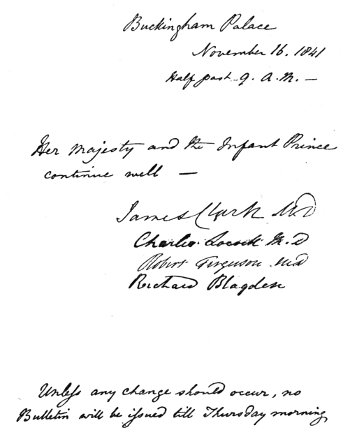 Buckingham Palace
November 16. 1841
Half past 9. A.M. —
Her Majesty and the Infant Prince
continue well —
James Clark MD
Charles Locock M.D
Robert Ferguson MD
Richard Blagden
Unless any change should occur, no
Bulletin will be issued till Thursday morning